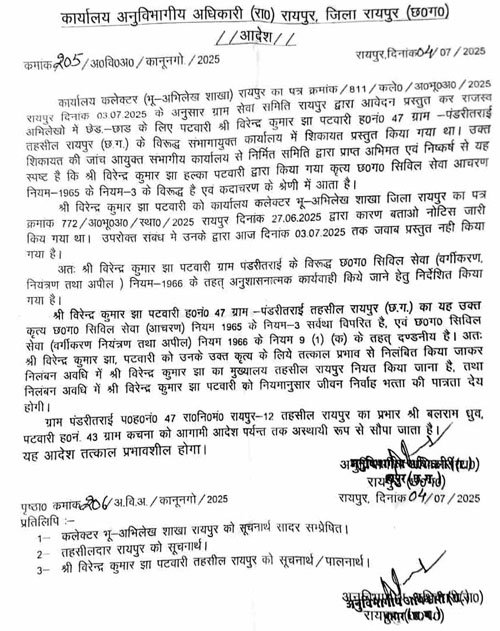 कार्यालय अनुविभागीय अधिकारी (रा०) रायपुर, जिला रायपुर (छ०ग०)
//आदेश//
कमाक 205/अ०वि०अ०/कानूनगो./2025 रायपुर,दिनांक 04/07/2025
कार्यालय कलेक्टर (भू–अभिलेख शाखा) रायपुर का पत्र क्रमांक/811/कले०/अ०भू०अ०/2025
रायपुर दिनांक 03.07.2025 के अनुसार ग्राम सेवा समिति रायपुर द्वारा आवेदन प्रस्तुत कर राजस्व
अभिलेखो में छेड–छाड के लिए पटवारी श्री विरेन्द्र कुमार झा पटवारी ह०नं० 47 ग्राम –पंडरीतराई
तहसील रायपुर (छ.ग.) के विरूद्ध सभागायुक्त कार्यालय में शिकायत प्रस्तुत किया गया था। उक्त
शिकायत की जांच आयुक्त सभागीय कार्यालय से निर्मित समिति द्वारा प्राप्त अभिमत एवं निष्कर्ष से यह
स्पष्ट है कि श्री विरेन्द्र कुमार झा हल्का पटवारी द्वारा किया गया कृत्य छ०ग० सिविल सेवा आचरण
नियम–1965 के नियम–3 के विरूद्ध है एवं कदाचरण के श्रेणी में आता है।
श्री विरेन्द्र कुमार झा पटवारी को कार्यालय कलेक्टर भू–अभिलेख शाखा जिला रायपुर का पत्र
क्रमांक 772/अ०भू०अ०/स्था०/2025 रायपुर दिनांक 27.06.2025 द्वारा कारण बताओ नोटिस जारी
किय गया था। उपरोक्त सबंध मे उनके द्वारा आज दिनांक 03.07.2025 तक जवाब प्रस्तुत नही किया
गया है।
अतः श्री विरेन्द्र कुमार झा पटवारी ग्राम पंडरीतराई के विरूद्ध छ०ग० सिविल सेवा (वर्गीकरण,
नियंत्रण तथा अपील ) नियम–1966 के तहत् अनुशासनात्मक कार्यवाही किये जाने हेतु निर्देशित किया
गया है।
श्री विरेन्द्र कुमार झा पटवारी ह०नं० 47 ग्राम –पंडरीतराई तहसील रायपुर (छ.ग.) का यह उक्त
कृत्य छ०ग० सिविल सेवा (आचरण) नियम 1965 के नियम–3 सर्वथा विपरित है, एवं छ०ग० सिविल
सेवा (वर्गीकरण नियंत्रण तथा अपील) नियम 1966 के नियम 9 (1) (क) के तहत् दण्डनीय है। अतः
श्री विरेन्द्र कुमार झा, पटवारी को उनके उक्त कृत्य के लिये तत्काल प्रभाव से निलंबित किया जाकर
निलंबन अवधि में श्री विरेन्द्र कुमार झा का मुख्यालय तहसील रायपुर नियत किया जाना है, तथा
निलंबन अवधि में श्री विरेन्द्र कुमार झा पटवारी को नियमानुसार जीवन निर्वाह भत्ता की पात्रता देय
होगी।
ग्राम पंडरीतराई प०ह०नं० 47 रा०नि०मं० रायपुर–12 तहसील रायपुर का प्रभार श्री बलराम ध्रुव,
पटवारी ह०नं. 43 ग्राम कचना को आगामी आदेश पर्यन्त तक अस्थायी रूप से सौपा जाता है।
यह आदेश तत्काल प्रभावशील होगा।
रायपुर (छ०ग०)
पृष्ठा० कमाक 206/अ.वि.अ./कानूगो/2025 रायपुर, दिनांक 04/07/2025
प्रतिलिपि :–
1– कलेक्टर भू–अभिलेख शाखा रायपुर को सूचनार्थ सादर सम्प्रेपित।
2– तहसीलदार रायपुर को सूचनार्थ।
3– श्री विरेन्द्र कुमार झा पटवारी तहसील रायपुर को सूचनार्थ/पालनार्थ।